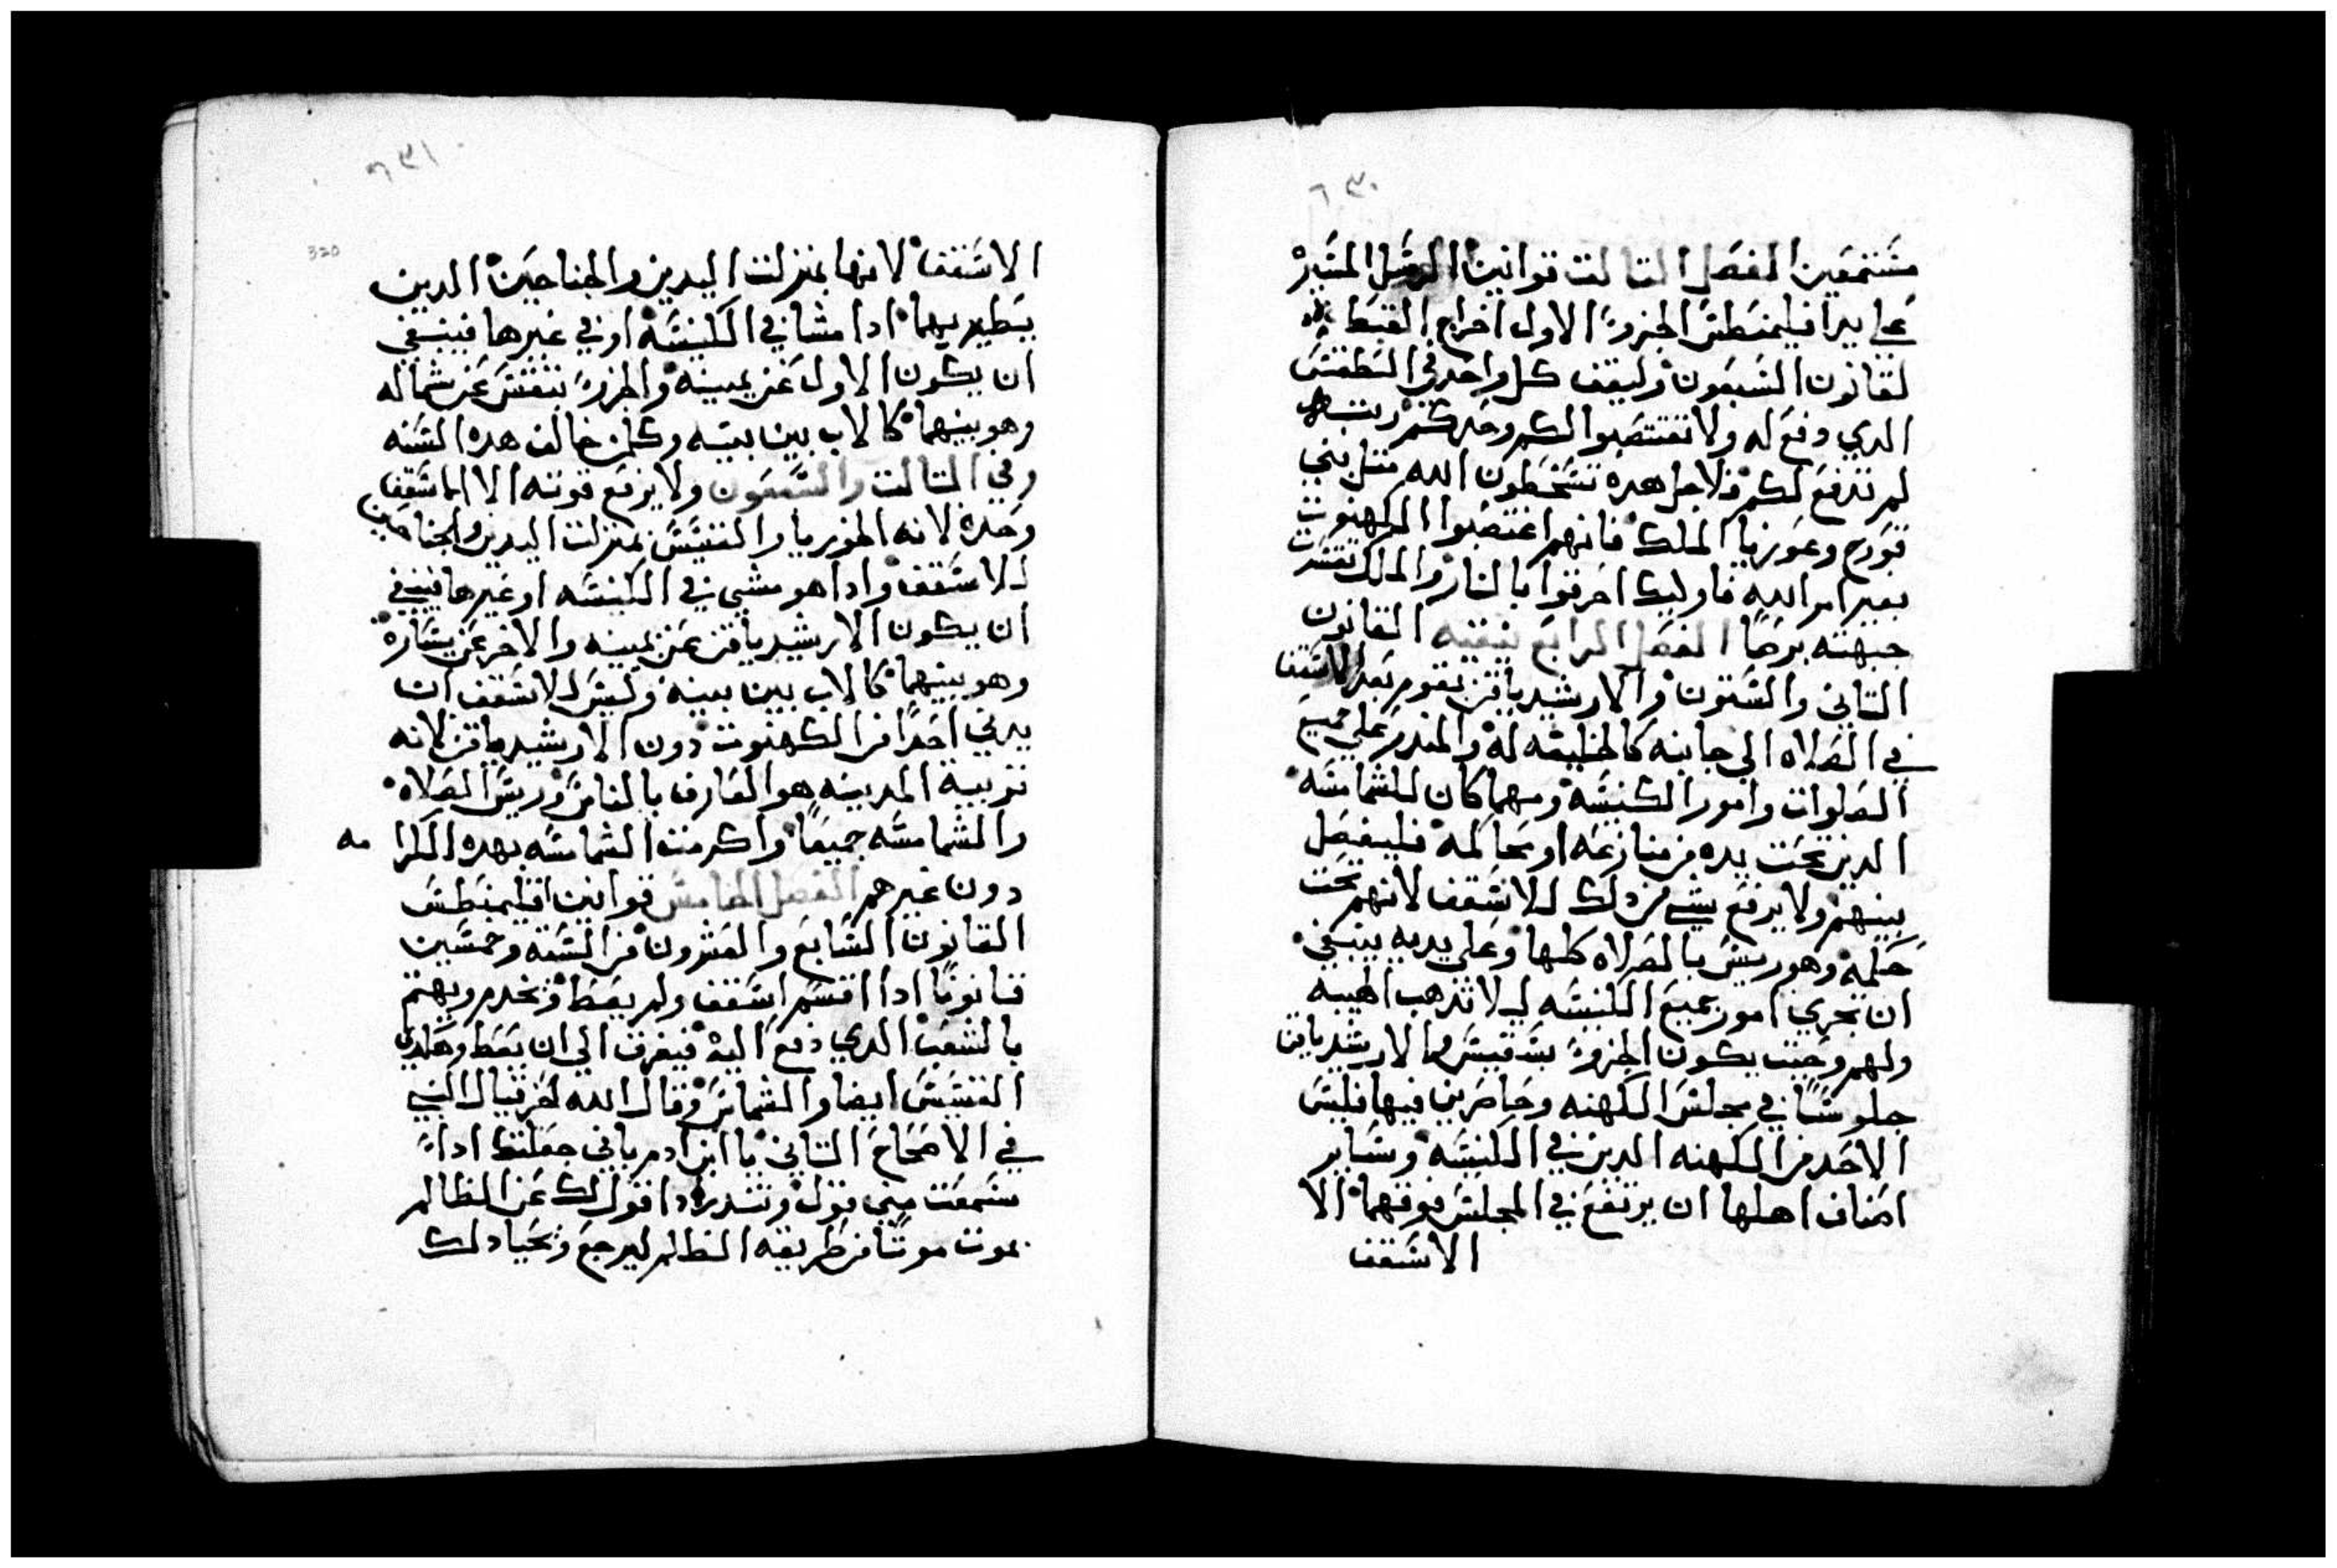 ٦٣٠
مستمعين الفصل التالت قوانين الرسل المسير
على يد اقليمنطس الجزوَ الاول اخراج القبط
لقانون السبعون وليقف كل واحد في الطقس
الدي دفع له ولا تغتصبوا لكم وحدكم رتبه
لم تدفع لكم فلاجل هده تسخطون الله متل بني
قورح وعوزيا الملك فانهم اغتصبوا الكهنوت
بغير امر الله فاوليك احرقوا بالنار والملك تقشرت
جبهته برصًا الفصل الرابع نيقيه القانون
التاني والستون والارشيدياقن يقوم بعد الاسقف
في الصلاه الي جانبه كالخليفه له والمندم علي جميع
الصلوات وامور الكنيسه ومهما كان للشمامسه
الدين تحت يده من منازعه او محاكمه فليفصل
بينهم ولا يرفع شي من دلك للاسقف لانهم تحت
حكمه وهو ريس بالصلاه كلها وعلي يديه ينبغي
ان تجري امور جميع الكنيسه ليلا تدهب الهيبه
ولهم وحيت يكون الجزوَ بسقيس والارشيدياقن
جلوسًا في مجلس الكهنه وحاضرين فيها فليس
لاحد من الكهنه الدين في الكنيسه وساير
اصناف اهلها ان يرتفع في المجلس فوقهما الا
الاسقف
٦٣١
320
الاسقف لانهما بمنزلت اليدين والجناحين الدين
يطير بهما ادا مشا في الكنيسه او في غيرها فينبغي
ان يكون الاول عن يمينه والجزوَ بنقس عن شماله
وهو بينهما كالاب بين بنيه وكلمن خالف هده السنه
وفي التالت والسبعون ولا يرفع فوقه الا الاسقف
وحده لانه الخوريا والقسيس بمنزلت اليدين والجناحين
للاسقف وادا هو مشي في الكنيسه او غيرها فينبغي
ان يكون الارشيدياقن عن يمينه والاخر عن يساره
وهو بينهما كالاب بين بنيه وليس للاسقف ان
يدني احدًا من الكهنوت دون الارشيدياقن لانه
تربية المدينه هو العارف بالناس وريس الصلاه
والشمامسه جميعًا واكرمت الشمامسه بهده الكرا مه
دون غيرهم الفصل الخامس قوانين اقليمنطس
القانون السابع والعشرون من الستة وخمسين
قانونًا ادا اقسم اسقف ولم يعظ ويخدم ويهتم
بالشعب الدي دفع اليه فيفرق الي ان يعظ وهكدي
القسيس ايضا والشماس وقال الله لحزقيال النبي
في الاصحاح التاني يا ابن ادم باني جعلتك اداً
سمعت مني قول وتندره ادا قول لك عن الظالم
يموت موتًا من طريقه الظالم ليرجع ويحيا دلك